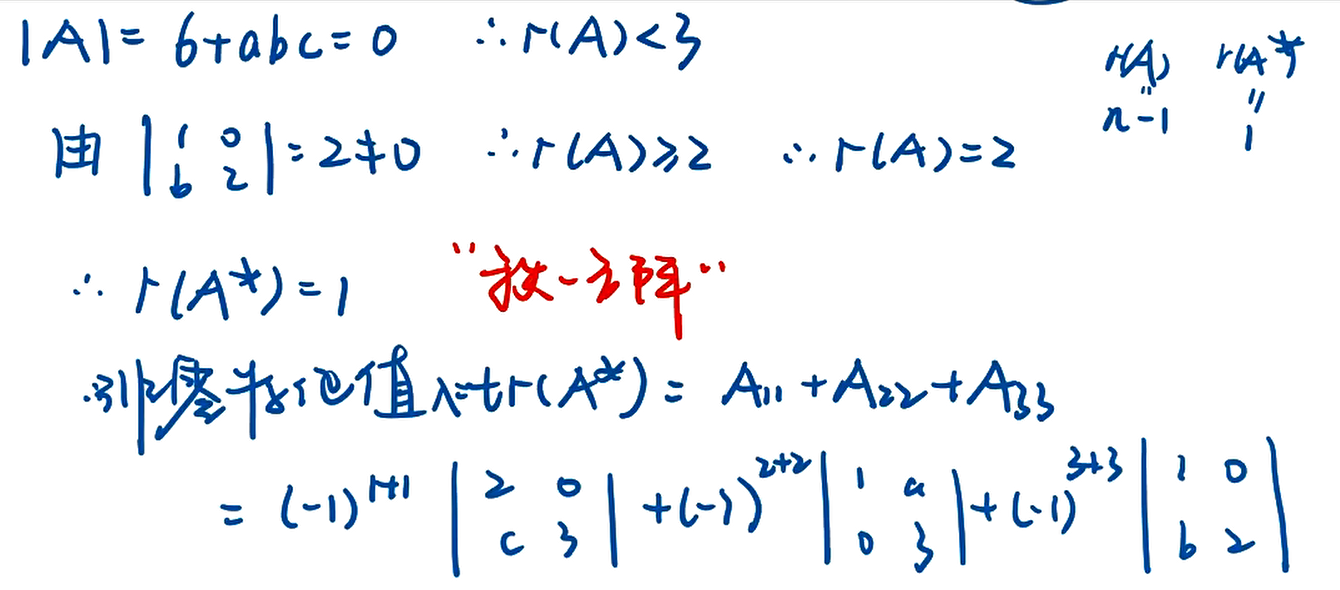 |A| = 6+abc = 0 ∴ r(A)<3
r(A) r(A*)
" "
n-1 1
由 |1 0; b 2| = 2≠0 ∴ r(A)≥2 ∴ r(A)=2
∴ r(A*)=1 "秩一方阵"
∴非零特征值λ=tr(A*) = A₁₁+A₂₂+A₃₃
= (-1)¹⁺¹ |2 0; c 3| +(-1)²⁺² |1 a; 0 3| +(-1)³⁺³ |1 0; b 2|